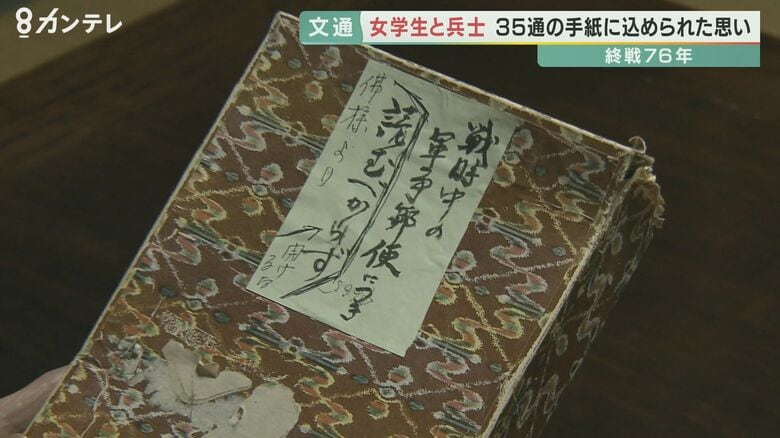 8カンテレ
文通 女学生と兵士 35通の手紙に込められた思い
終戦76年
戦時中の
軍事郵便につき
読むべからず
開けるな
佛様より